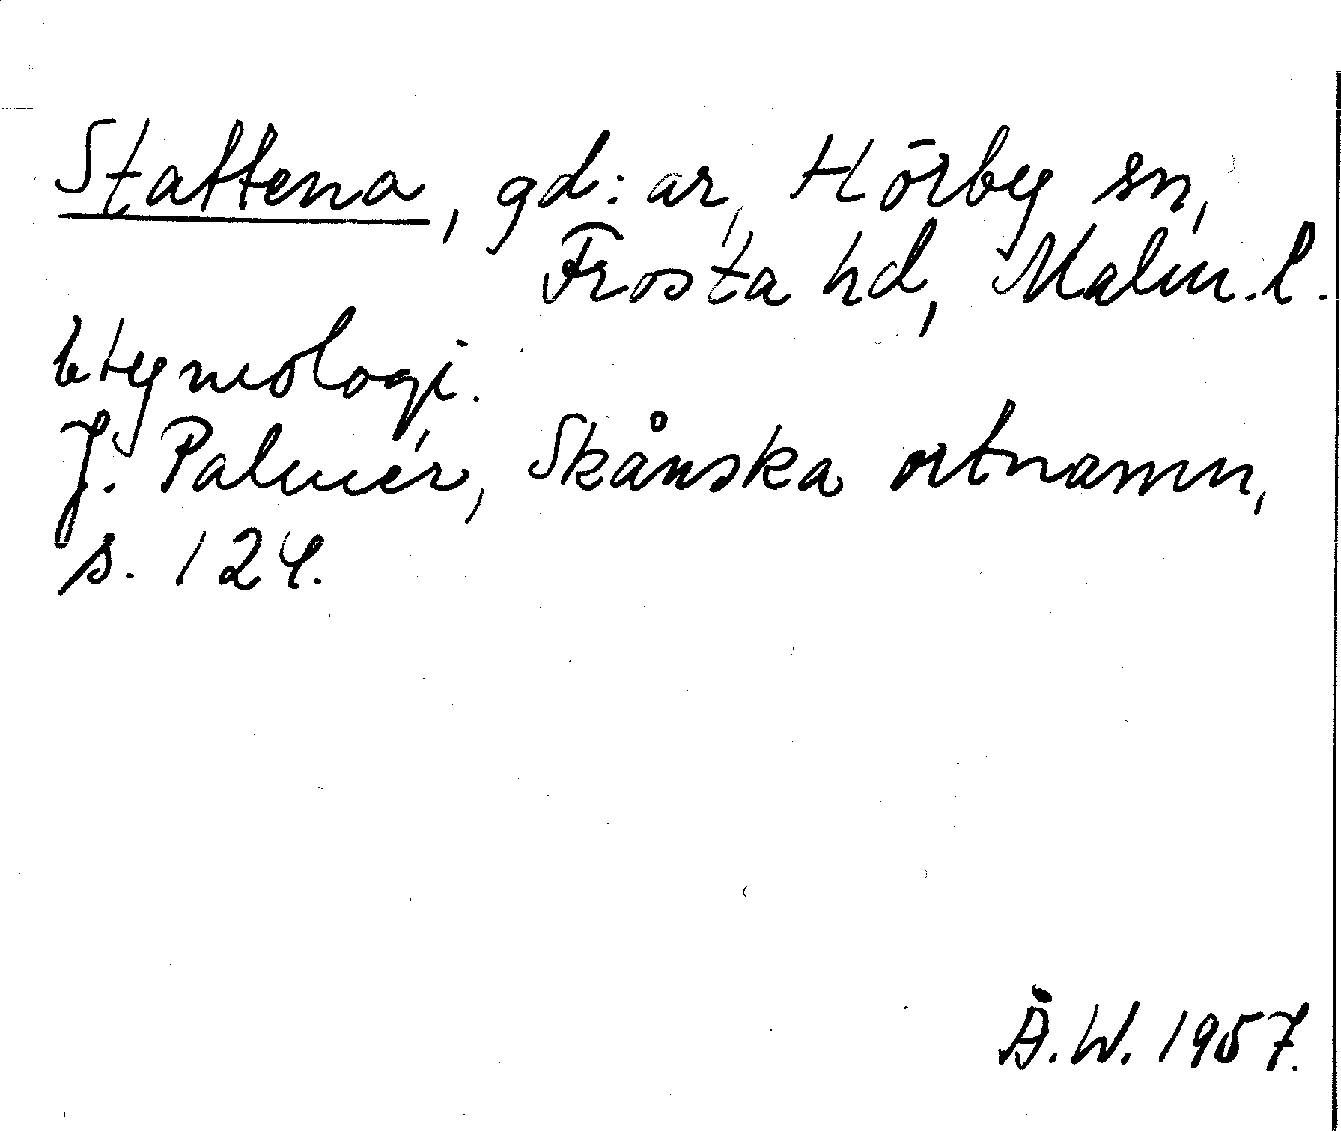 Stattena, gd:ar, Hörby sn,
Frosta hd, Malm. l.
Etymologi.
J. Palmér, Skånska ortnamn,
s. 124.
Ä.W. 1957.